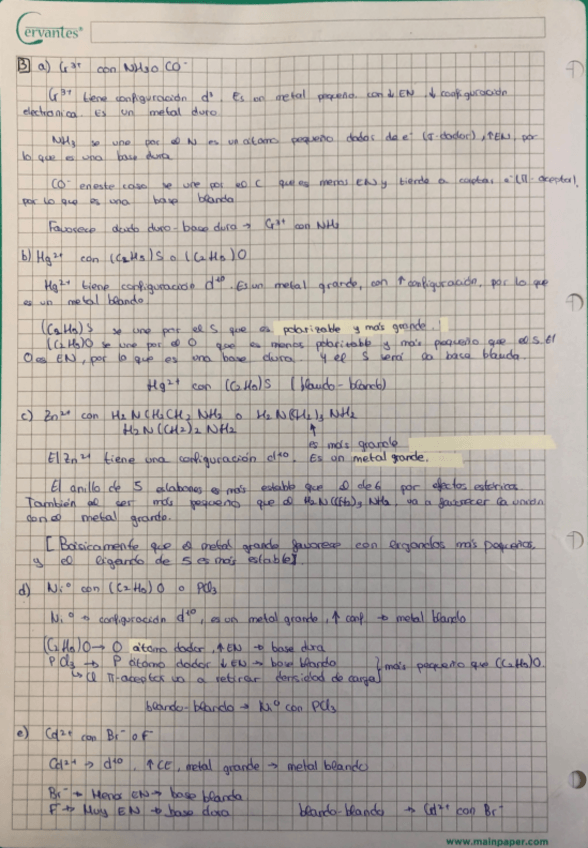 Cervantes
3 a) Cr³⁺ con NH₃ o CO⁻
Cr³⁺ tiene configuración d³. Es un metal pequeño con ↓ EN, ↓ configuración
electrónica. Es un metal duro
NH₃ se une por el N es un átomo pequeño dador de e⁻ (σ-dador), ↑EN, por
lo que es una base dura.
CO⁻ en este caso se une por el C que es menos EN y tiende a captar e⁻ (π-aceptor),
por lo que es una base blanda
Favorece ácido duro-base dura → Cr³⁺ con NH₃
b) Hg²⁺ con (C₂H₅)S o (C₂H₅)O
Hg²⁺ tiene configuración d¹⁰. Es un metal grande, con ↑ configuración, por lo que
es un metal blando
(C₂H₅)S se une por el S que es polarizable y más grande.
(C₂H₅)O se une por el O que es menos polarizable y más pequeño que el S. El
O es EN, por lo que es una base dura. y el S será la base blanda.
Hg²⁺ con (C₂H₅)S (blando-blando)
c) Zn²⁺ con H₂N(CH₂CH₂NH₂ o H₂N(CH₂)₃NH₂
H₂N(CH₂)₂NH₂ ↑
es más grande
El Zn²⁺ tiene una configuración d¹⁰. Es un metal grande.
El anillo de 5 eslabones es más estable que el de 6 por efectos estéricos.
También al ser más pequeño que el H₂N(CH₂)₃NH₂, va a favorecer la unión
con el metal grande.
[Básicamente que el metal grande favorece con ligandos más pequeños,
y el ligando de 5 es más estable]
d) Ni⁰ con (C₂H₅)O o PCl₃
Ni⁰ → configuración d¹⁰, es un metal grande, ↑ conf. → metal blando
(C₂H₅)O → O átomo dador, ↑EN → base dura
PCl₃ → P átomo dador ↓EN → base blanda } más pequeño que (C₂H₅)O.
↳ Cl π-aceptor va a retirar densidad de carga
blando-blando → Ni⁰ con PCl₃
e) Cd²⁺ con Br⁻ o F⁻
Cd²⁺ → d¹⁰, ↑CE, metal grande → metal blando
Br⁻ → Menos EN → base blanda
F⁻ → Muy EN → base dura blando-blando → Cd²⁺ con Br⁻
www.mainpaper.com